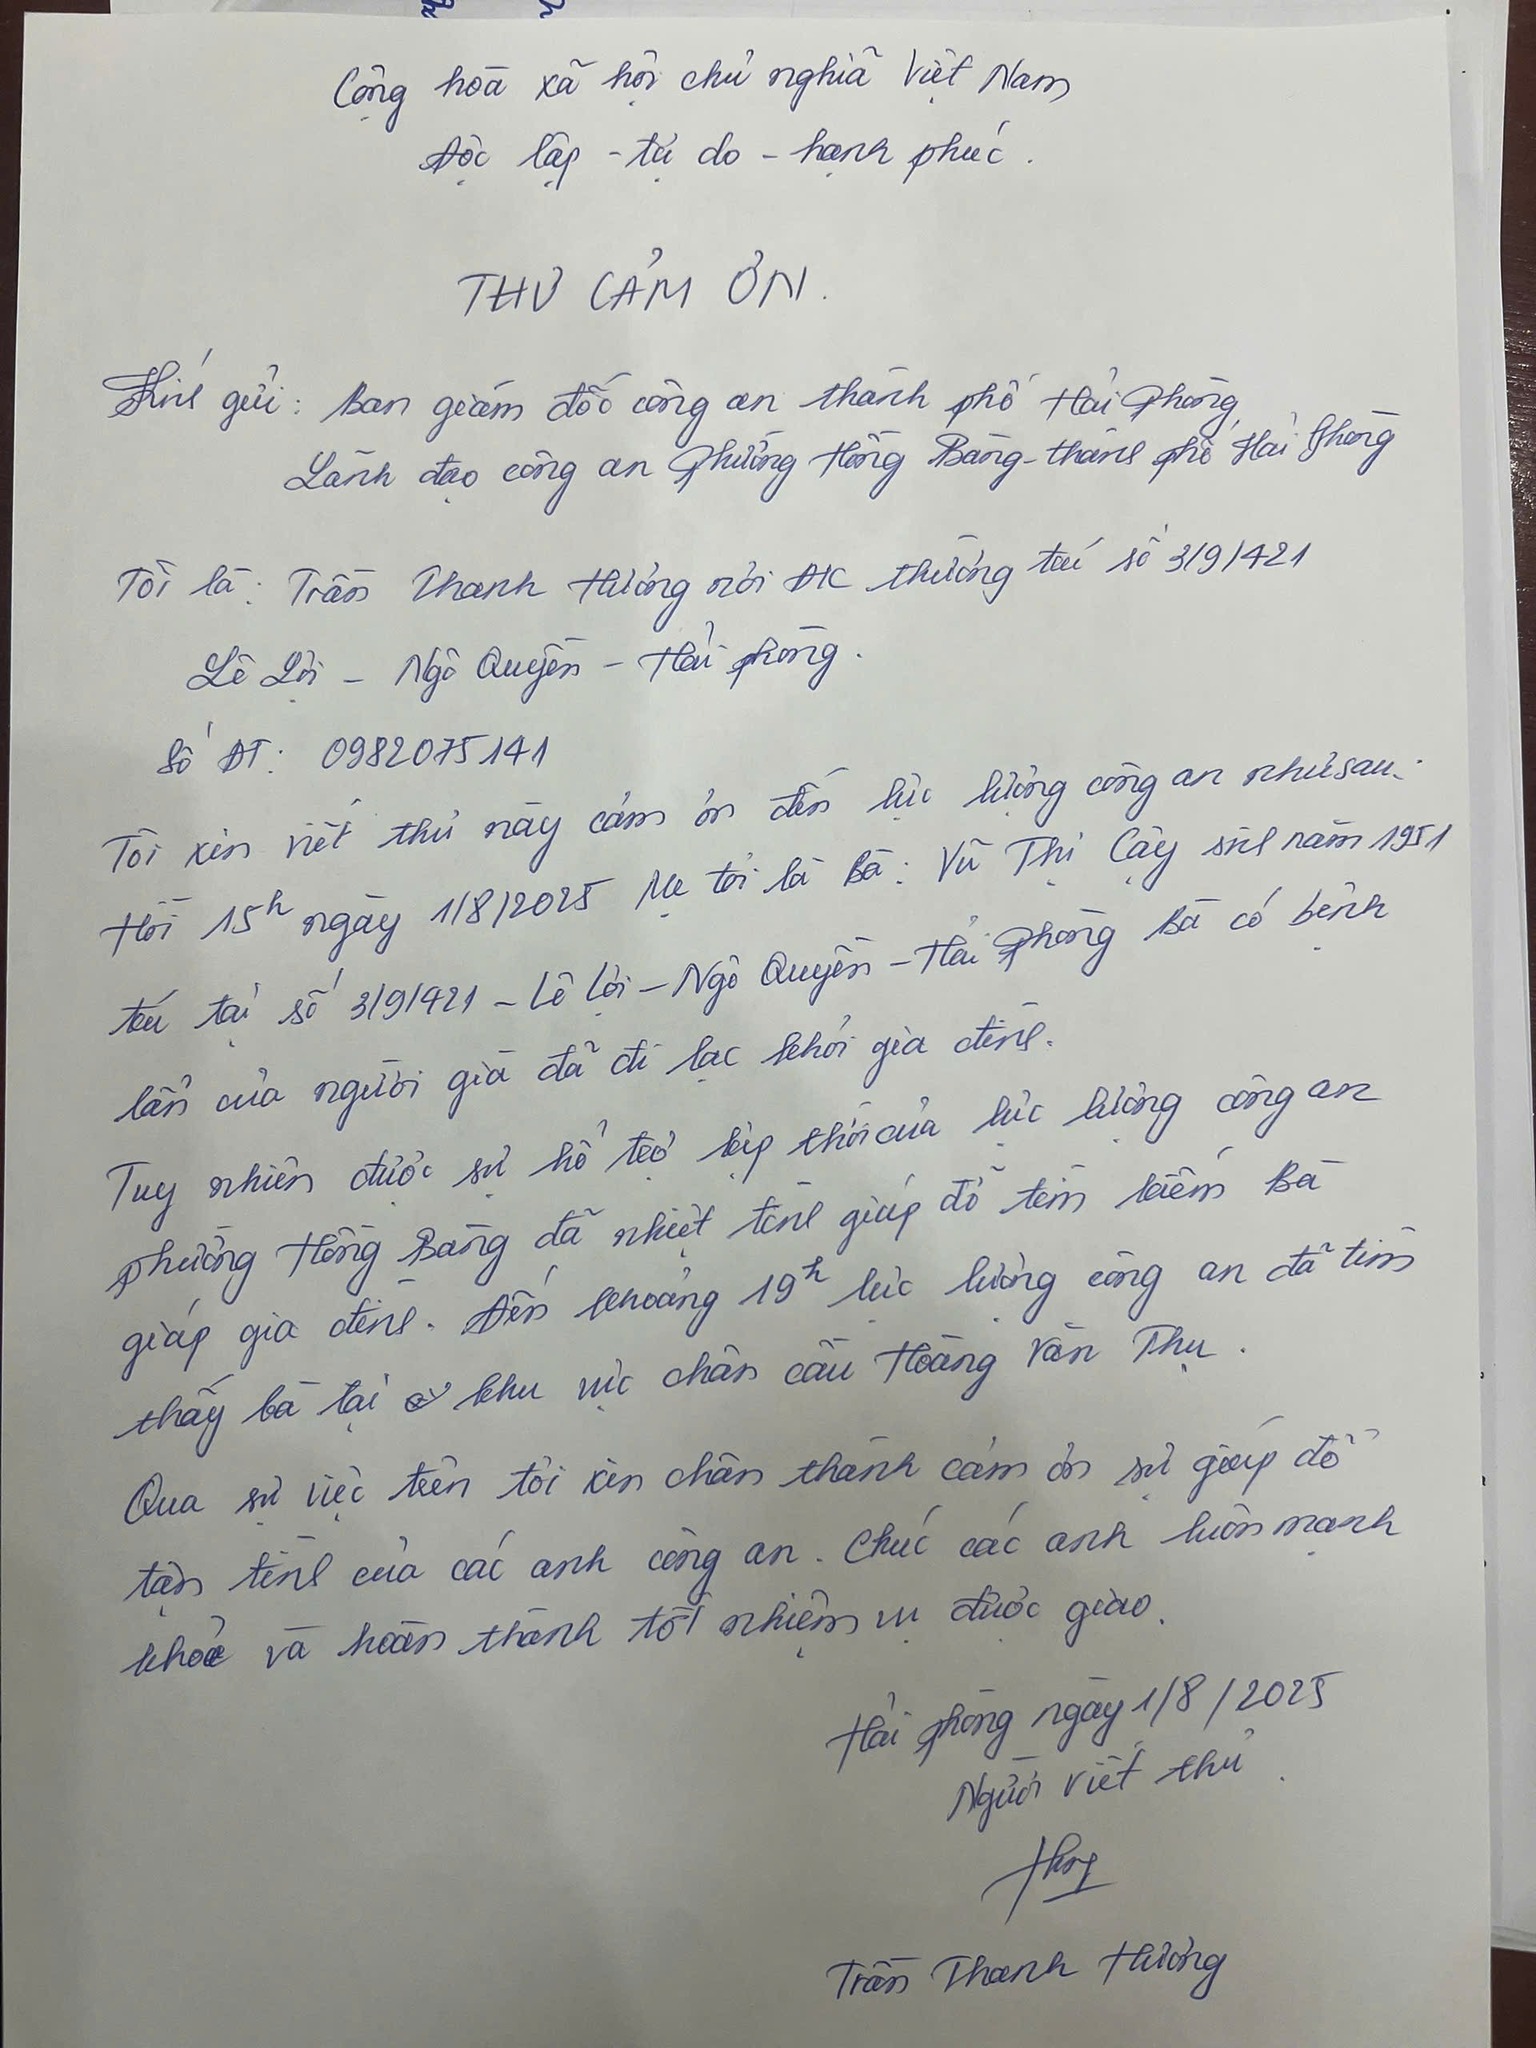 Cộng hoà xã hội chủ nghĩa Việt Nam
Độc lập - tự do - hạnh phúc.
THƯ CẢM ƠN.
Kính gửi: Ban giám đốc công an thành phố Hải Phòng
Lãnh đạo công an Phường Hồng Bàng - thành phố Hải Phòng
Tôi là: Trần Thanh Hương nơi ĐK thường trú số 3/9/421
Lê Lợi - Ngô Quyền - Hải phòng.
Số ĐT: 0982075141
Tôi xin viết thư này cảm ơn đến lực lượng công an như sau:
Hồi 15h ngày 1/8/2025 Mẹ tôi là Bà: Vũ Thị Cậy sinh năm 1951
trú tại số 3/9/421 - Lê Lợi - Ngô Quyền - Hải Phòng Bà có bệnh
lẩn của người già đã đi lạc khỏi gia đình.
Tuy nhiên được sự hỗ trợ kịp thời của lực lượng công an
phường Hồng Bàng đã nhiệt tình giúp đỡ tìm kiếm Bà
giúp gia đình. Đến khoảng 19h lực lượng công an đã tìm
thấy bà tại khu vực chân cầu Hoàng Văn Thụ.
Qua sự việc trên tôi xin chân thành cảm ơn sự giúp đỡ
tận tình của các anh công an. Chúc các anh luôn mạnh
khoẻ và hoàn thành tốt nhiệm vụ được giao.
Hải phòng ngày 1/8/2025
Người viết thư.
Trần Thanh Hương